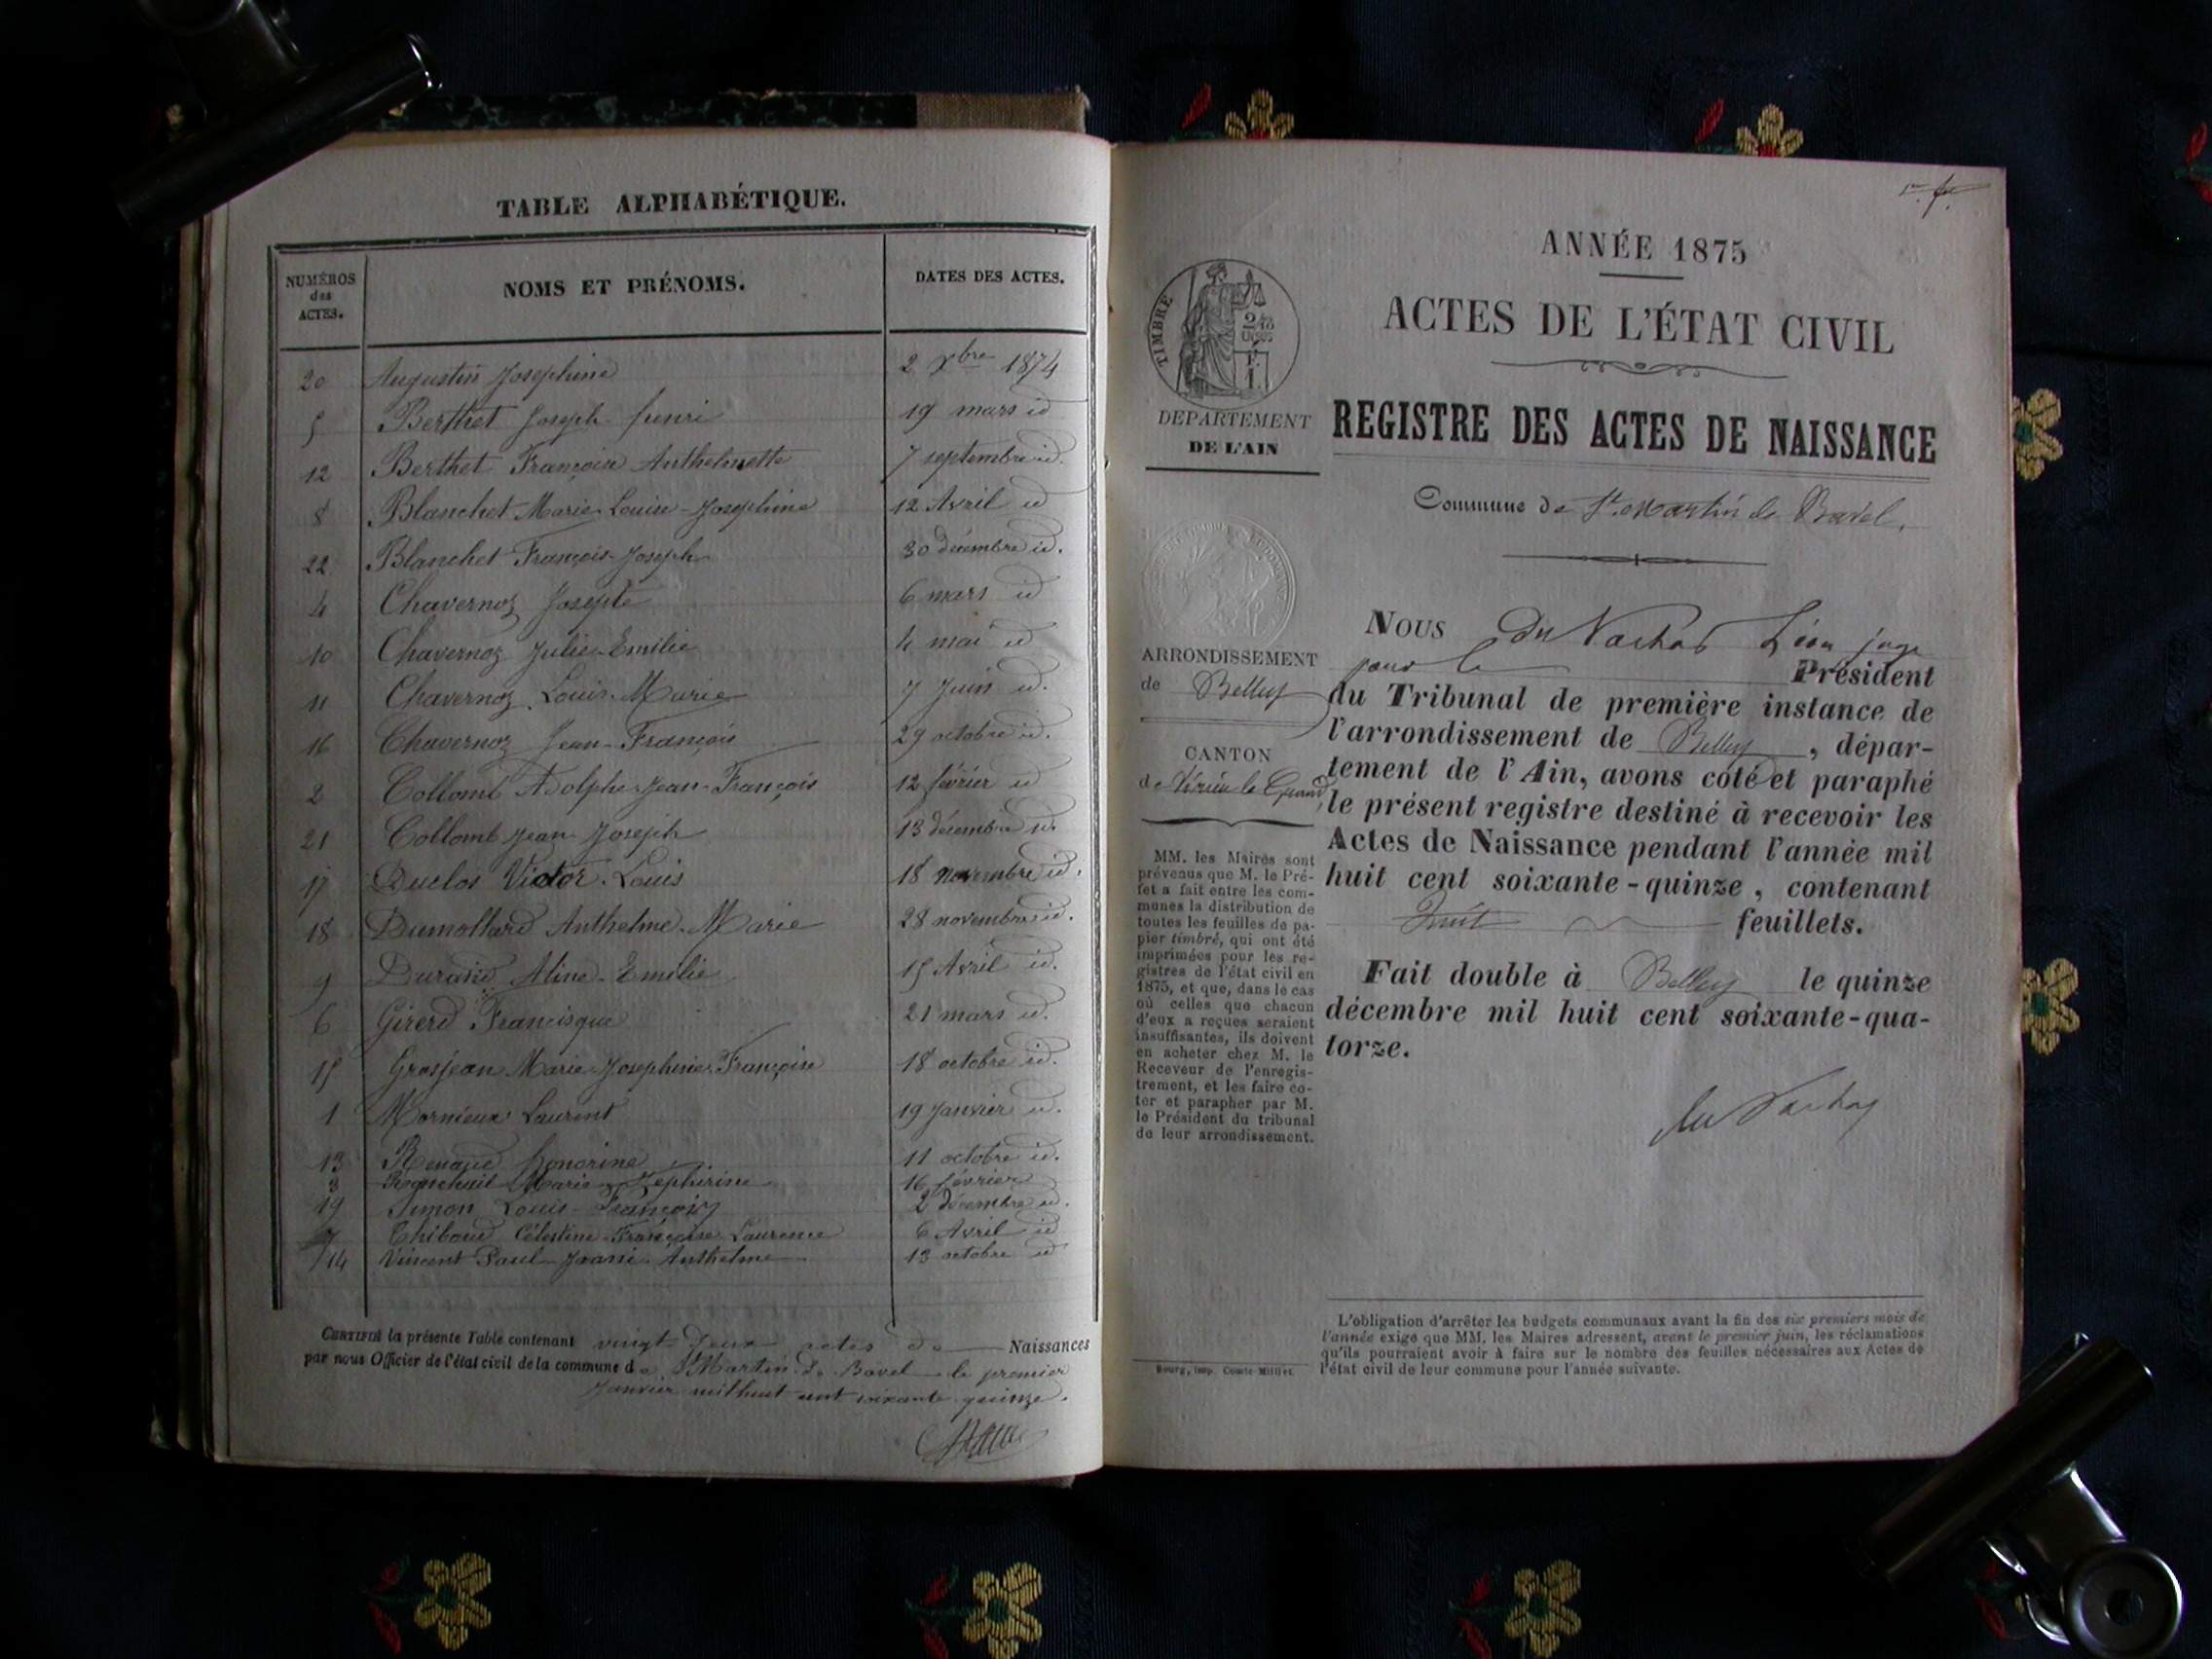 TABLE ALPHABÉTIQUE.
NUMÉROS des ACTES. NOMS ET PRÉNOMS. DATES DES ACTES.
20 Augustin Josephine 2 Xbre 1874
5 Berthet Joseph henri 19 mars id
12 Berthet Françoise Anthelmette 7 septembre id.
8 Blanchet Marie-Louise-Josephine 12 Avril id
22 Blanchet François-Joseph 30 décembre id.
4 Chavernoz Josepte 6 mars id
10 Chavernoz Julie-Emilie 4 mai id
11 Chavernoz Louis-Marie 7 Juin id.
16 Chavernoz Jean-François 29 octobre id.
2 Collomb Adolphe-Jean-François 12 février id
21 Collomb Jean-Joseph 13 décembre id
17 Duclos Victor-Louis 18 novembre id.
18 Dumollard Anthelme-Marie 28 novembre id.
9 Durand Aline-Emilie 15 Avril id.
6 Girerd Francisque 21 mars id.
15 Grosjean Marie-Josephine-Françoise 18 octobre id.
1 Mornieux Laurent 19 Janvier id.
13 honorine 11 octobre id.
3 Marie Zephirine 16 février
19 Simon Louis-François 2 décembre id.
7 Thibaud Célestine-Françoise Laurence 6 Avril id
14 Vincent Paul Anthelme 13 octobre id
CERTIFIÉ la présente Table contenant vingt deux actes de Naissances
par nous Officier de l'état civil de la commune de St Martin de Bavel le premier
Janvier mil huit cent soixante quinze.
ANNÉE 1875
ACTES DE L'ÉTAT CIVIL
REGISTRE DES ACTES DE NAISSANCE
Commune de St. Martin de Bavel.
TIMBRE
DEPARTEMENT
DE L'AIN
ARRONDISSEMENT
de Belley
CANTON
de Virieu le Grand
MM. les Maires sont
prévenus que M. le Pré-
fet a fait entre les com-
munes la distribution de
toutes les feuilles de pa-
pier timbré, qui ont été
imprimées pour les re-
gistres de l'état civil en
1875, et que, dans le cas
où celles que chacun
d'eux a reçues seraient
insuffisantes, ils doivent
en acheter chez M. le
Receveur de l'enregis-
trement, et les faire co-
ter et parapher par M.
le Président du tribunal
de leur arrondissement.
Bourg, imp. Comte-Milliet.
NOUS du Vachat Léon juge
pour le Président
du Tribunal de première instance de
l'arrondissement de Belley, dépar-
tement de l'Ain, avons coté et paraphé
le présent registre destiné à recevoir les
Actes de Naissance pendant l'année mil
huit cent soixante-quinze, contenant
huit feuillets.
Fait double à Belley le quinze
décembre mil huit cent soixante-qua-
torze.
du Vachat
L'obligation d'arrêter les budgets communaux avant la fin des six premiers mois de
l'année exige que MM. les Maires adressent, avant le premier juin, les réclamations
qu'ils pourraient avoir à faire sur le nombre des feuilles nécessaires aux Actes de
l'état civil de leur commune pour l'année suivante.